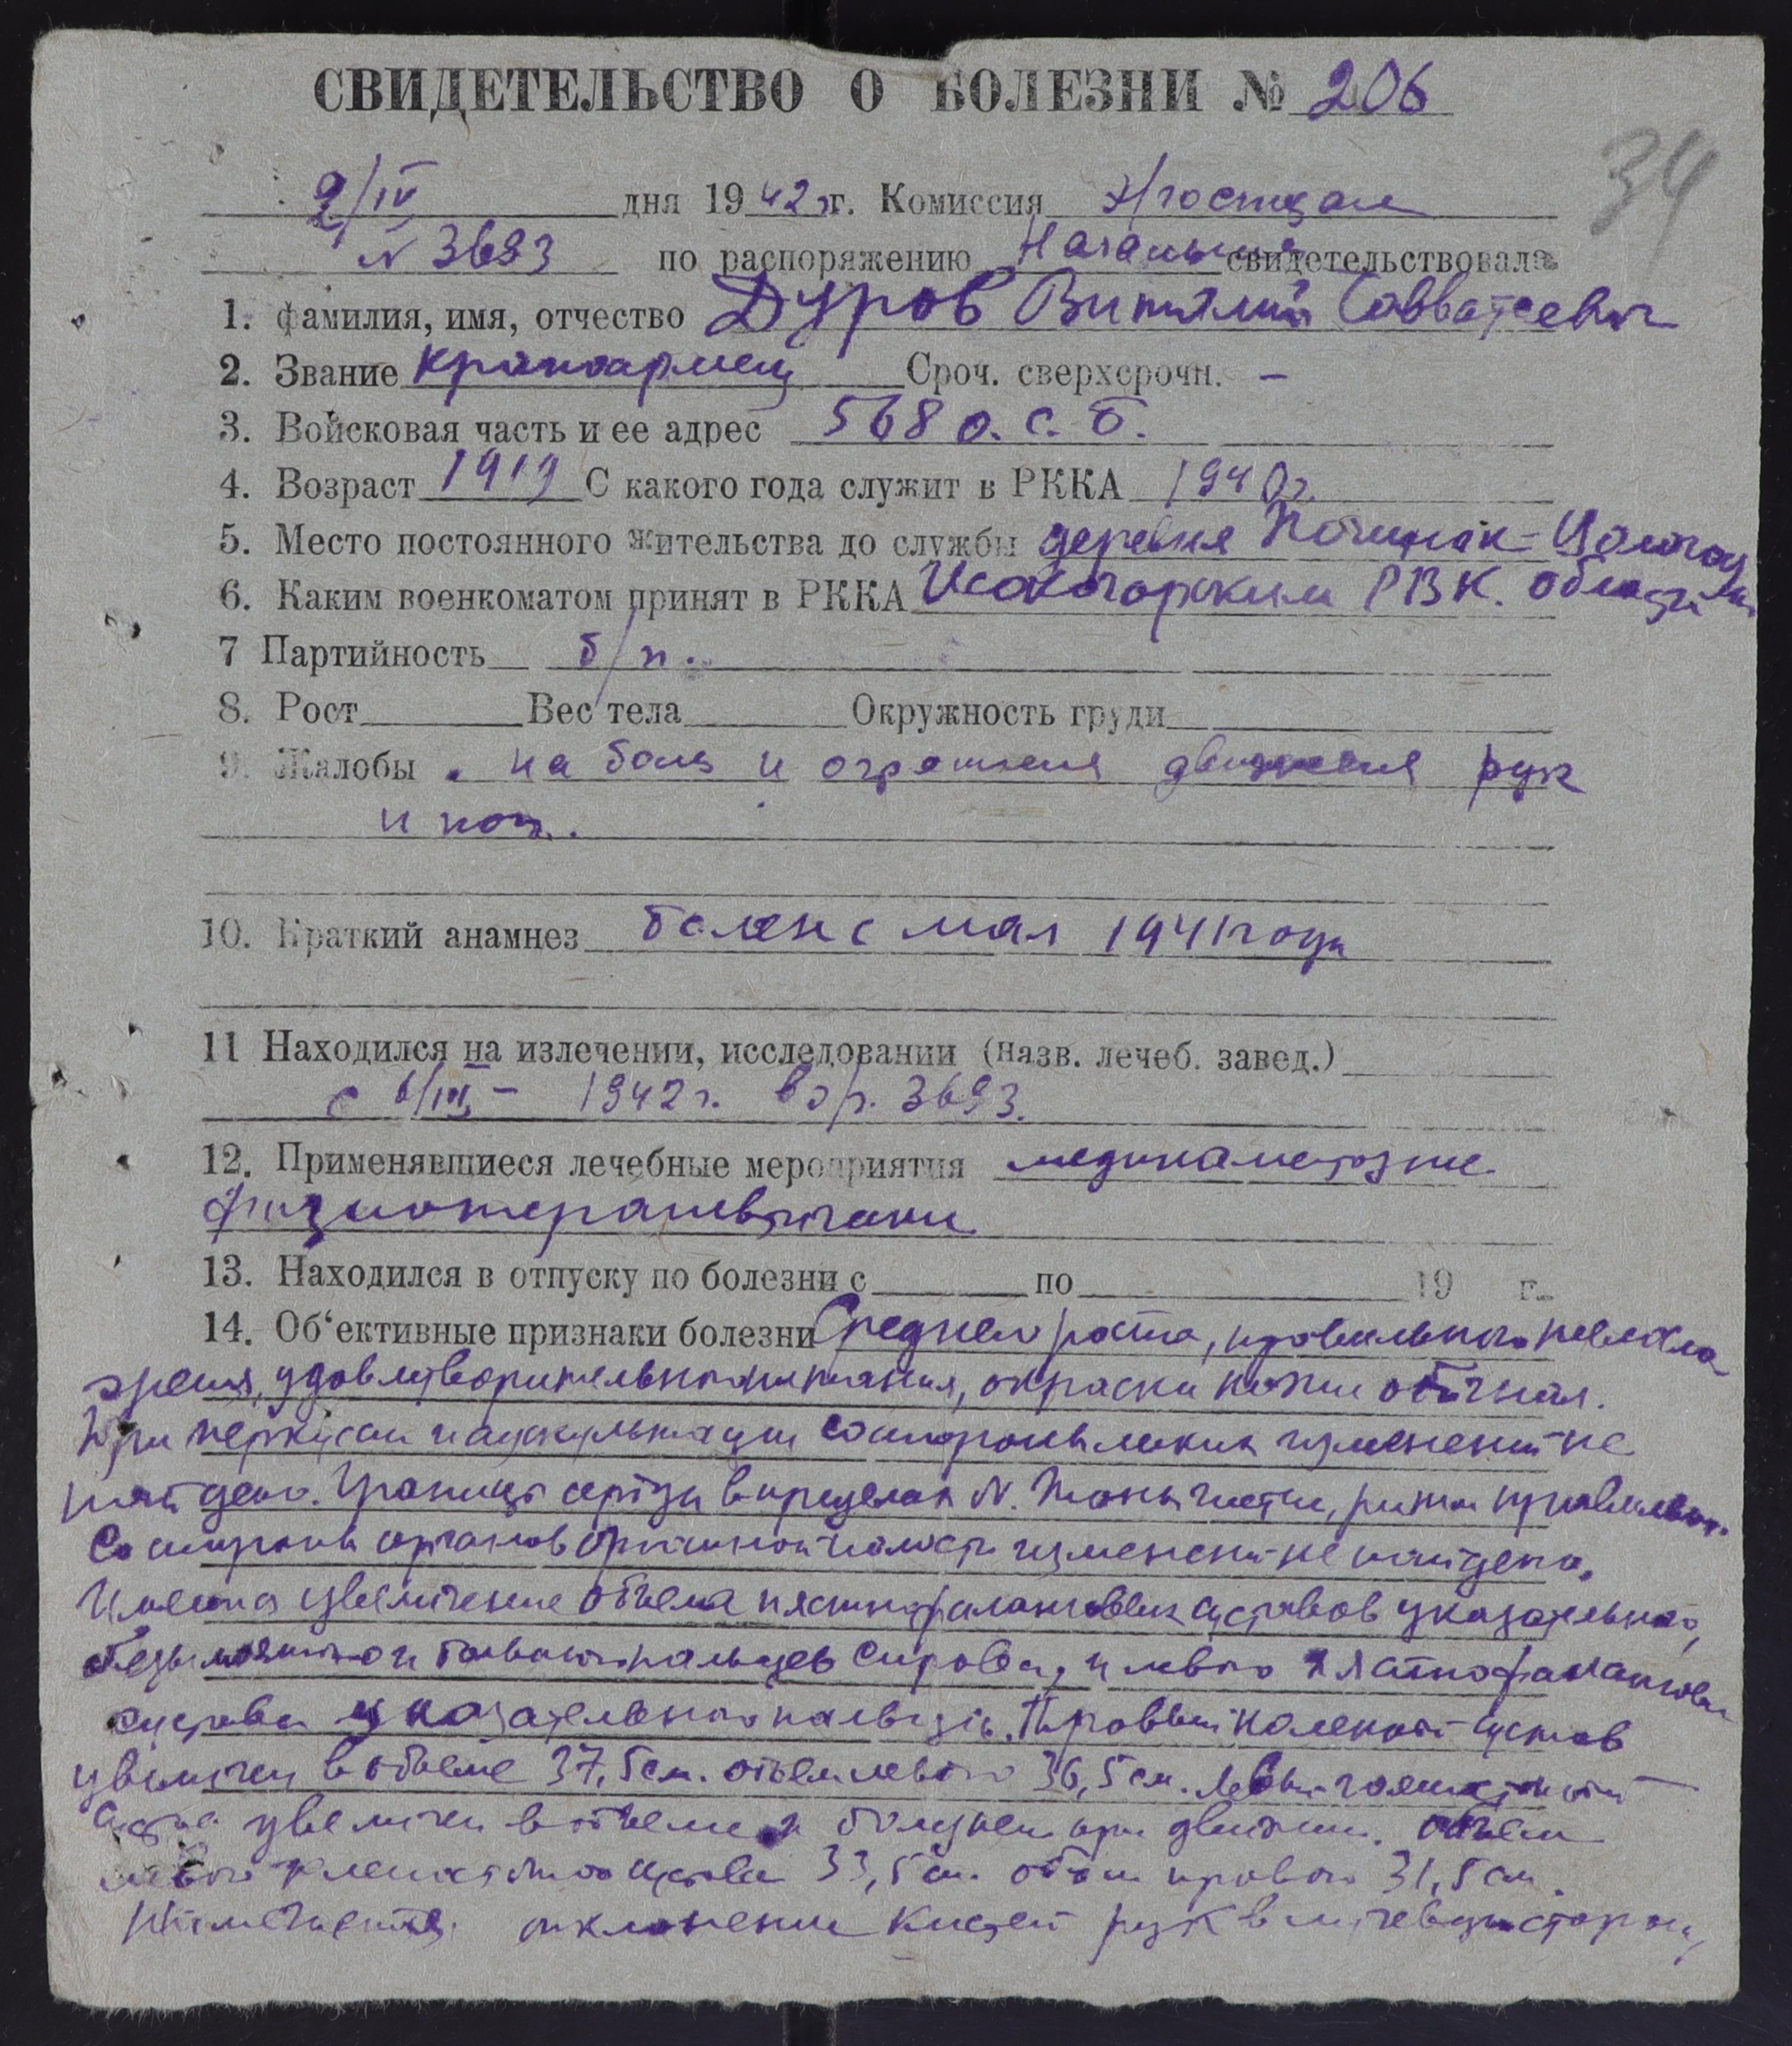 СВИДЕТЕЛЬСТВО О БОЛЕЗНИ № 206
34
2/IV дня 1942 г. Комиссия Э/госпиталя
N 3693 по распоряжению Начальника свидетельствовала
1. фамилия, имя, отчество Дуров Виталий Савватеевич
2. Звание красноармеец Сроч. сверхсрочн. –
3. Войсковая часть и ее адрес 568 о. с. б.
4. Возраст 1919 С какого года служит в РККА 1940 г.
5. Место постоянного жительства до службы деревня Починок-
6. Каким военкоматом принят в РККА Исакогорским РВК. области
7 Партийность б/п.
8. Рост Вес тела Окружность груди
9. Жалобы на боли и движения рук
и ног.
10. Краткий анамнез болен с мая 1941 года
11 Находился на излечении, исследовании (назв. лечеб. завед.)
с 6/III – 1942 г. в э/г. 3693.
12. Применявшиеся лечебные мероприятия медикаментозное
физиотерапевтическое
13. Находился в отпуску по болезни с по 19 г.
14. Об‘ективные признаки болезни Среднего роста, правильного телосло-
жения, удовлетворительного питания, окраска кожи обычная.
При перкусии и аускультации со стороны легких изменений не
найдено. Границы сердца в пределах N. Тоны чистые, ритм правильный.
Со стороны органов брюшной полости изменений не найдено.
Имеется увеличение объема пястнофаланговых суставов указательного,
безымянного и большого пальцев справа, и левого пястнофалангового
сустава указательного пальца. Правый коленный сустав
увеличен в объеме 37,5 см. объем левого 36,5 см. Левый голеностопный
сустав увеличен в объеме и болезнен при движении. Объем
левого голеностопного сустава 33,5 см. объем правого 31,5 см.
отклонение кистей рук в локтевую сторону,